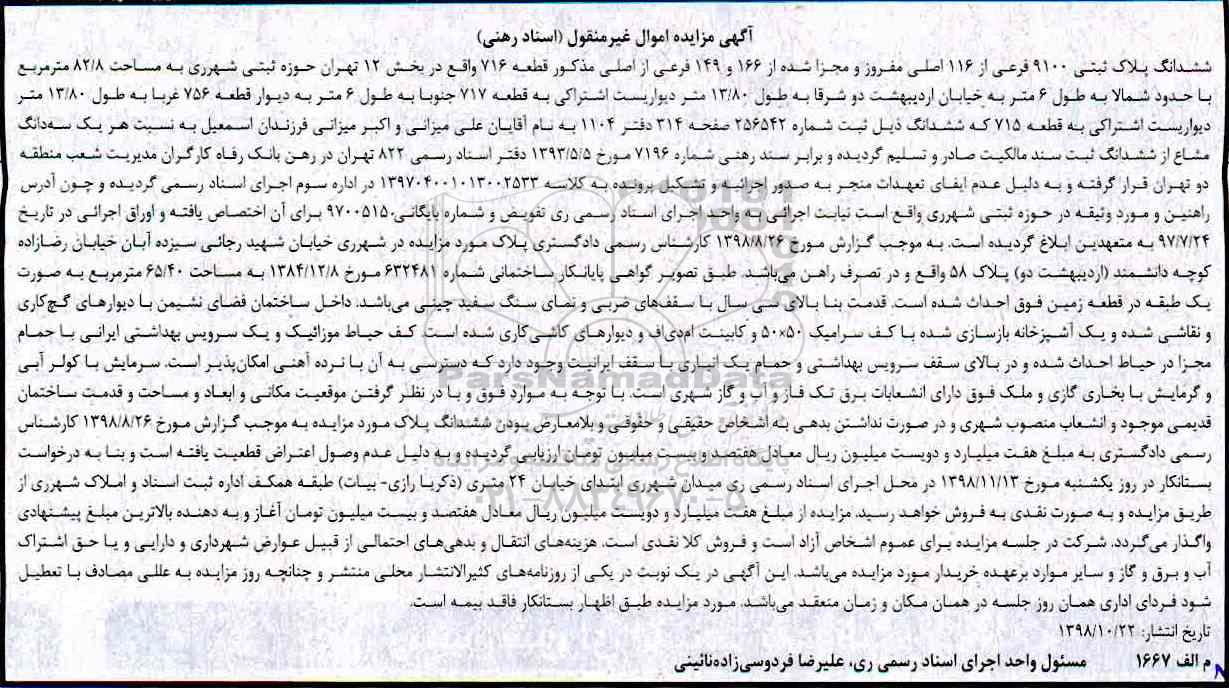 آگهی مزایده اموال غیرمنقول (اسناد رهنی)
ششدانگ پلاک ثبتی ۹۱۰۰ فرعی از ۱۱۶ اصلی مفروز و مجزا شده از ۱۶۶ و ۱۴۹ فرعی از اصلی مذکور قطعه ۷۱۶ واقع در بخش ۱۲ تهران حوزه ثبتی شهرری به مساحت ۸۲/۸ مترمربع
با حدود شمالا به طول ۶ متر به خیابان اردیبهشت دو شرقا به طول ۱۳/۸۰ متر دیواریست اشتراکی به قطعه ۷۱۷ جنوبا به طول ۶ متر به دیوار قطعه ۷۵۶ غربا به طول ۱۳/۸۰ متر
دیواریست اشتراکی به قطعه ۷۱۵ که ششدانگ ذیل ثبت شماره ۲۵۶۵۴۲ صفحه ۳۱۴ دفتر ۱۱۰۴ به نام آقایان علی میزانی و اکبر میزانی فرزندان اسمعیل به نسبت هر یک سه‌دانگ
مشاع از ششدانگ ثبت سند مالکیت صادر و تسلیم گردیده و برابر سند رهنی شماره ۷۱۹۶ مورخ ۱۳۹۳/۵/۵ دفتر اسناد رسمی ۸۲۲ تهران در رهن بانک رفاه کارگران مدیریت شعب منطقه
دو تهران قرار گرفته و به دلیل عدم ایفای تعهدات منجر به صدور اجرائیه و تشکیل پرونده به کلاسه ۱۳۹۷۰۴۰۰۱۰۱۳۰۰۲۵۳۳ در اداره سوم اجرای اسناد رسمی گردیده و چون آدرس
راهنین و مورد وثیقه در حوزه ثبتی شهرری واقع است نیابت اجرائی به واحد اجرای اسناد رسمی ری تفویض و شماره بایگانی۹۷۰۰۵۱۵۰ برای آن اختصاص یافته و اوراق اجرائی در تاریخ
۹۷/۷/۲۴ به متعهدین ابلاغ گردیده است. به موجب گزارش مورخ ۱۳۹۸/۸/۲۶ کارشناس رسمی دادگستری پلاک مورد مزایده در شهرری خیابان شهید رجائی سیزده آبان خیابان رضازاده
کوچه دانشمند (اردیبهشت دو) پلاک ۵۸ واقع و در تصرف راهن می‌باشد. طبق تصویر گواهی پایانکار ساختمانی شماره ۶۳۲۴۸۱ مورخ ۱۳۸۴/۱۲/۸ به مساحت ۶۵/۴۰ مترمربع به صورت
یک طبقه در قطعه زمین فوق احداث شده است. قدمت بنا بالای سی سال با سقف‌های ضربی و نمای سنگ سفید چینی می‌باشد. داخل ساختمان فضای نشیمن با دیوارهای گچ‌کاری
و نقاشی شده و یک آشپزخانه بازسازی شده با کف سرامیک ۵۰×۵۰ و کابینت ام‌دی‌اف و دیوارهای کاشی‌کاری شده است. کف حیاط موزائیک و یک سرویس بهداشتی ایرانی با حمام
مجزا در حیاط احداث شده و در بالای سقف سرویس بهداشتی و حمام یک انباری با سقف ایرانیت وجود دارد که دسترسی به آن با نرده آهنی امکان‌پذیر است. سرمایش با کولر آبی
و گرمایش با بخاری گازی و ملک فوق دارای انشعابات برق تک فاز و آب و گاز شهری است. با توجه به موارد فوق و با در نظر گرفتن موقعیت مکانی و ابعاد و مساحت و قدمت ساختمان
قدیمی موجود و انشعاب منصوب شهری و در صورت نداشتن بدهی به اشخاص حقیقی و حقوقی و بلامعارض بودن ششدانگ پلاک مورد مزایده به موجب گزارش مورخ ۱۳۹۸/۸/۲۶ کارشناس
رسمی دادگستری به مبلغ هفت میلیارد و دویست میلیون ریال معادل هفتصد و بیست میلیون تومان ارزیابی گردیده و به دلیل عدم وصول اعتراض قطعیت یافته است و بنا به درخواست
بستانکار در روز یکشنبه مورخ ۱۳۹۸/۱۱/۱۳ در محل اجرای اسناد رسمی ری میدان شهرری ابتدای خیابان ۲۴ متری (ذکریا رازی- بیات) طبقه همکف اداره ثبت اسناد و املاک شهرری از
طریق مزایده و به صورت نقدی به فروش خواهد رسید. مزایده از مبلغ هفت میلیارد و دویست میلیون ریال معادل هفتصد و بیست میلیون تومان آغاز و به دهنده بالاترین مبلغ پیشنهادی
واگذار می‌گردد. شرکت در جلسه مزایده برای عموم اشخاص آزاد است و فروش کلا نقدی است. هزینه‌های انتقال و بدهی‌های احتمالی از قبیل عوارض شهرداری و دارایی و یا حق اشتراک
آب و برق و گاز و سایر موارد برعهده خریدار مورد مزایده می‌باشد. این آگهی در یک نوبت در یکی از روزنامه‌های کثیرالانتشار محلی منتشر و چنانچه روز مزایده به عللی مصادف با تعطیل
شود فردای اداری همان روز جلسه در همان مکان و زمان منعقد می‌باشد. مورد مزایده طبق اظهار بستانکار فاقد بیمه است.
تاریخ انتشار: ۱۳۹۸/۱۰/۲۲
م الف ۱۶۶۷ مسئول واحد اجرای اسناد رسمی ری، علیرضا فردوسی‌زاده‌نائینی
ParsNamadData
پایگاه اطلاع رسانی مناقصه و مزایده
۰۲۱-۸۸۳۴۹۶۷۰-۵